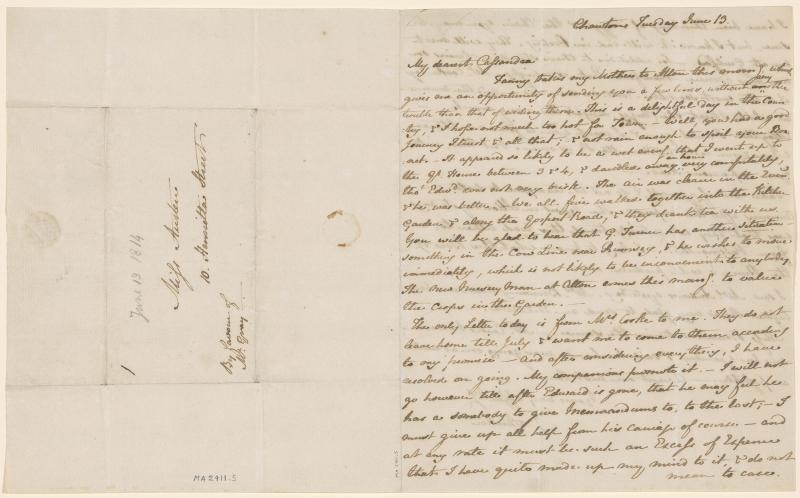 June 13 1814
Miss Austen
10. Henrietta Street
By favour of
Mr. Gray
1
MA 2911.5
Chawton Tuesday June 13.
My dearest Cassandra
Fanny takes my Mother to Alton this morng which
gives me an opportunity of sending you a few lines, without any other
trouble than that of writing them. This is a delightful day in the Coun
try, & I hope not much too hot for Town. — Well, you had a good
Journey I trust & all that; & not rain enough to spoil your Bon
net. — It appeared so likely to be a wet eveng that I went up to
the Gt House between 3 & 4, & dawdled away an hour very comfortably,
tho' Edwd was not very brisk. The air was clearer in the Eveng
& he was better. — We all five walked together into the Kitchen
Garden & along the Gosport Road, & they drank tea with us.
You will be glad to hear that G. Turner has another situation —
something in the Cow Line near Rumsey, & he wishes to move
immediately, which is not likely to be inconvenient to anybody.
The new Nursery Man at Alton comes this morng to value
the Crops in the Garden. —
The only Letter to day is from Mrs Cooke to me. They do not
leave home till July & want me to come to them according
to my promise. — And after considering everything, I have
resolved on going. My companions promote it. — I will not
go however till after Edward is gone, that he may feel he
has a somebody to give Memorandums to, to the last; — I
must give up all help from his Carriage of course. — and
at any rate it must be such an Excess of Expence
that I have quite made up my mind to it, & do not
mean to care.